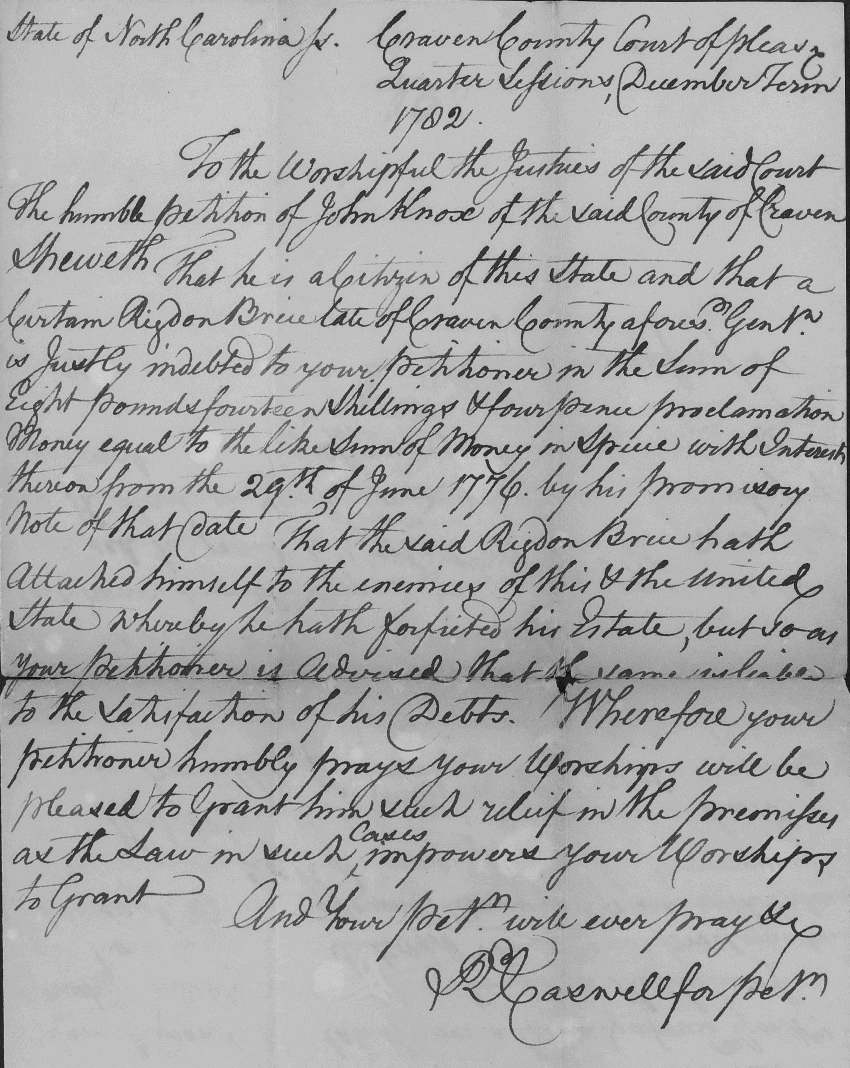 State of North Carolina Ss. Craven County Court of pleas &
Quarter Sessions, December Term
1782.
To the Worshipful the Justices of the said Court
The humble petition of John Knox of the said County of Craven
Sheweth That he is a Citizen of this State and that a
Certain Rigdon Brice late of Craven County afores.d Gent.n
is Justly indebted to your petitioner in the Sum of
Eight pounds fourteen Shillings & four pence proclamation
Money equal to the like Sum of Money in Specie with Interest
thereon from the 29th. of June 1776. by his promisory
Note of that date That the said Rigdon Brice hath
Attached himself to the enemies of this & the United
State whereby he hath forfieted his Estate, but so as
your petitioner is Advised that the same is liable
to the Satisfaction of his Debts. Wherefore your
petitioner humbly prays your Worships will be
pleased to Grant him such relief in the premisses
as the Law in such Cases impowers your Worships
to Grant
And Your Pet.r will ever pray &c
Rd Caswell for pet.r